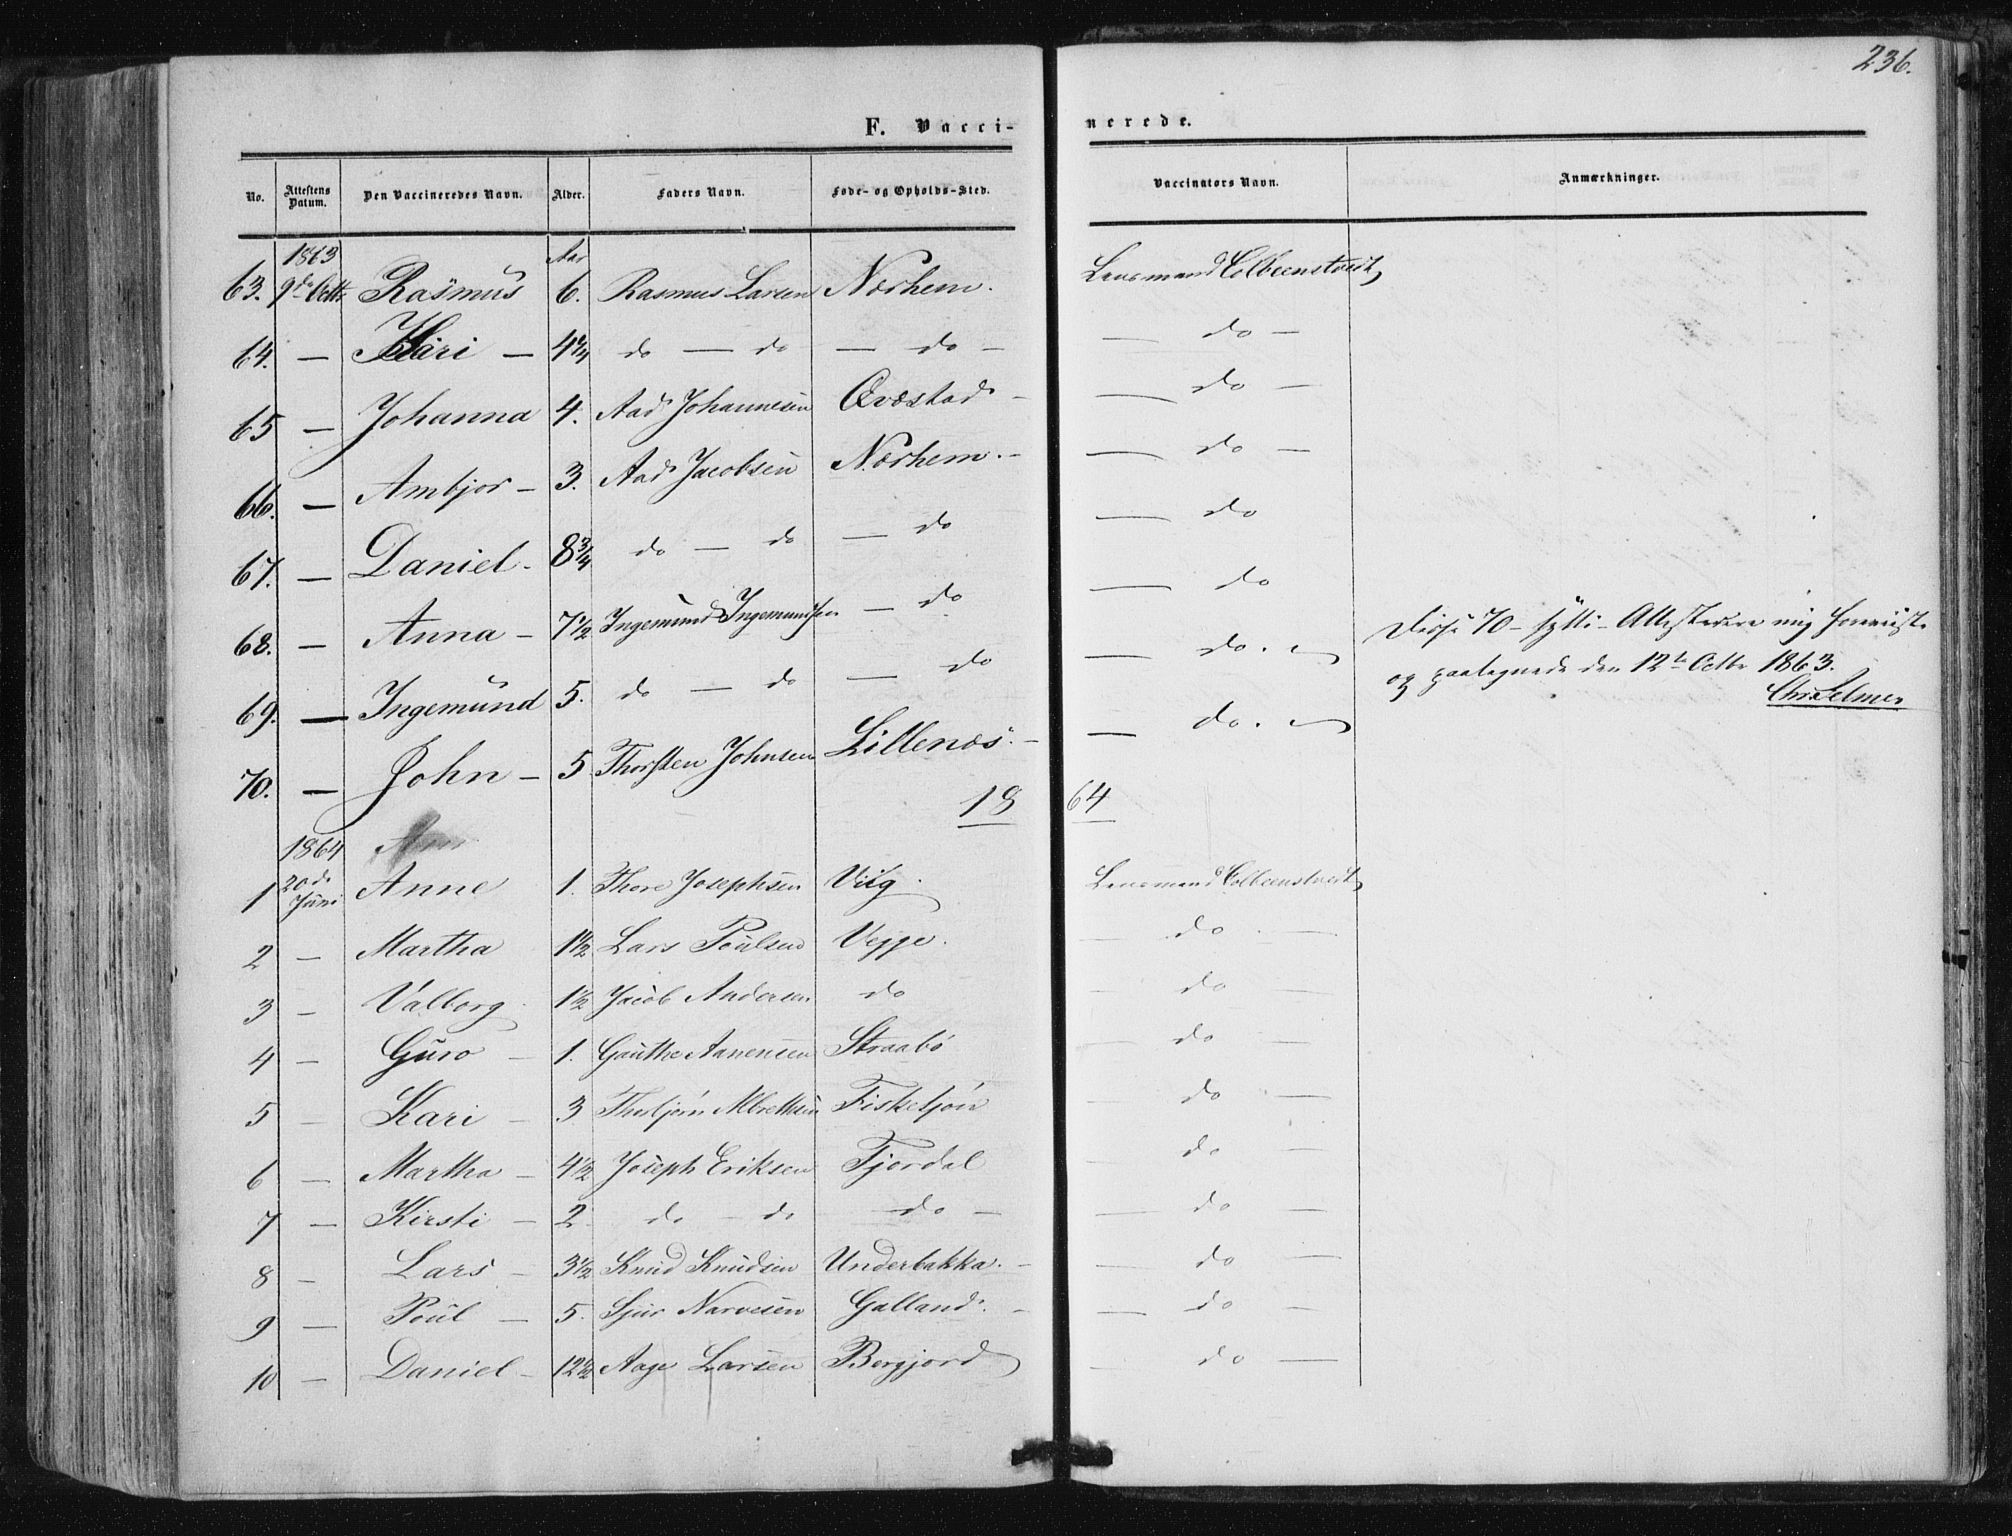 236.
F. Vacci- nerede.
No. Attestens Datum. Den Vaccineredes Navn. Alder. Faders Navn. Føde- og Opholds-Sted. Vaccinators Navn. Anmærkninger.
1863 Aar
63. 9de Octbr Rasmus 6. Rasmus Larsen Nærhem. Lensmand Colbeenstvedt
64. — Kari — 4 1/4 do — do — do — — do —
65 — Johanna 4. Aad Johannesen Qvæstad — — do —
66. — Ambjør — 3. Aad Jacobsen Nærhem. — — do —
67. — Daniel — 8 3/4 do — do — do — do
68. — Anna — 7 1/2 Ingemund Ingemundsen — do — do
69. — Ingemund 5. do — do — do — do.
70. — John — 5 Thorsten Johnsen Lillenæs. — — do.
Disse 70 – sytti – Attesterere mig foreviiste
og paategnede den 12te Octbr 1863.
Chr. Selmer
18 64
1864
1 20de Juni Anne 1. Thore Josephsen Viig. Lensmand Colbeenstvedt
2 — Martha 1 1/2 Lars Poulsen Vegge. — do —
3 — Valborg 1 1/2 Jacob Andersen do — do —
4 — Guro — 1. Gauthe Aanensen Straabø — do —
5 — Kari — 3 Thorbjørn Albrethsen Fisketjøn — do —
6 — Martha — 4 1/2 Joseph Eriksen Fjordal — do —
7 — Kirsti — 2 do — do — do — — do —
8 — Lars — 3 1/2 Knud Knudsen Underbakka. — — do —
9 — Poul — 5. Sjur Narvesen Galland. — — do —
10 — Daniel — 12 1/2 Aage Larsen Bergjord — do —